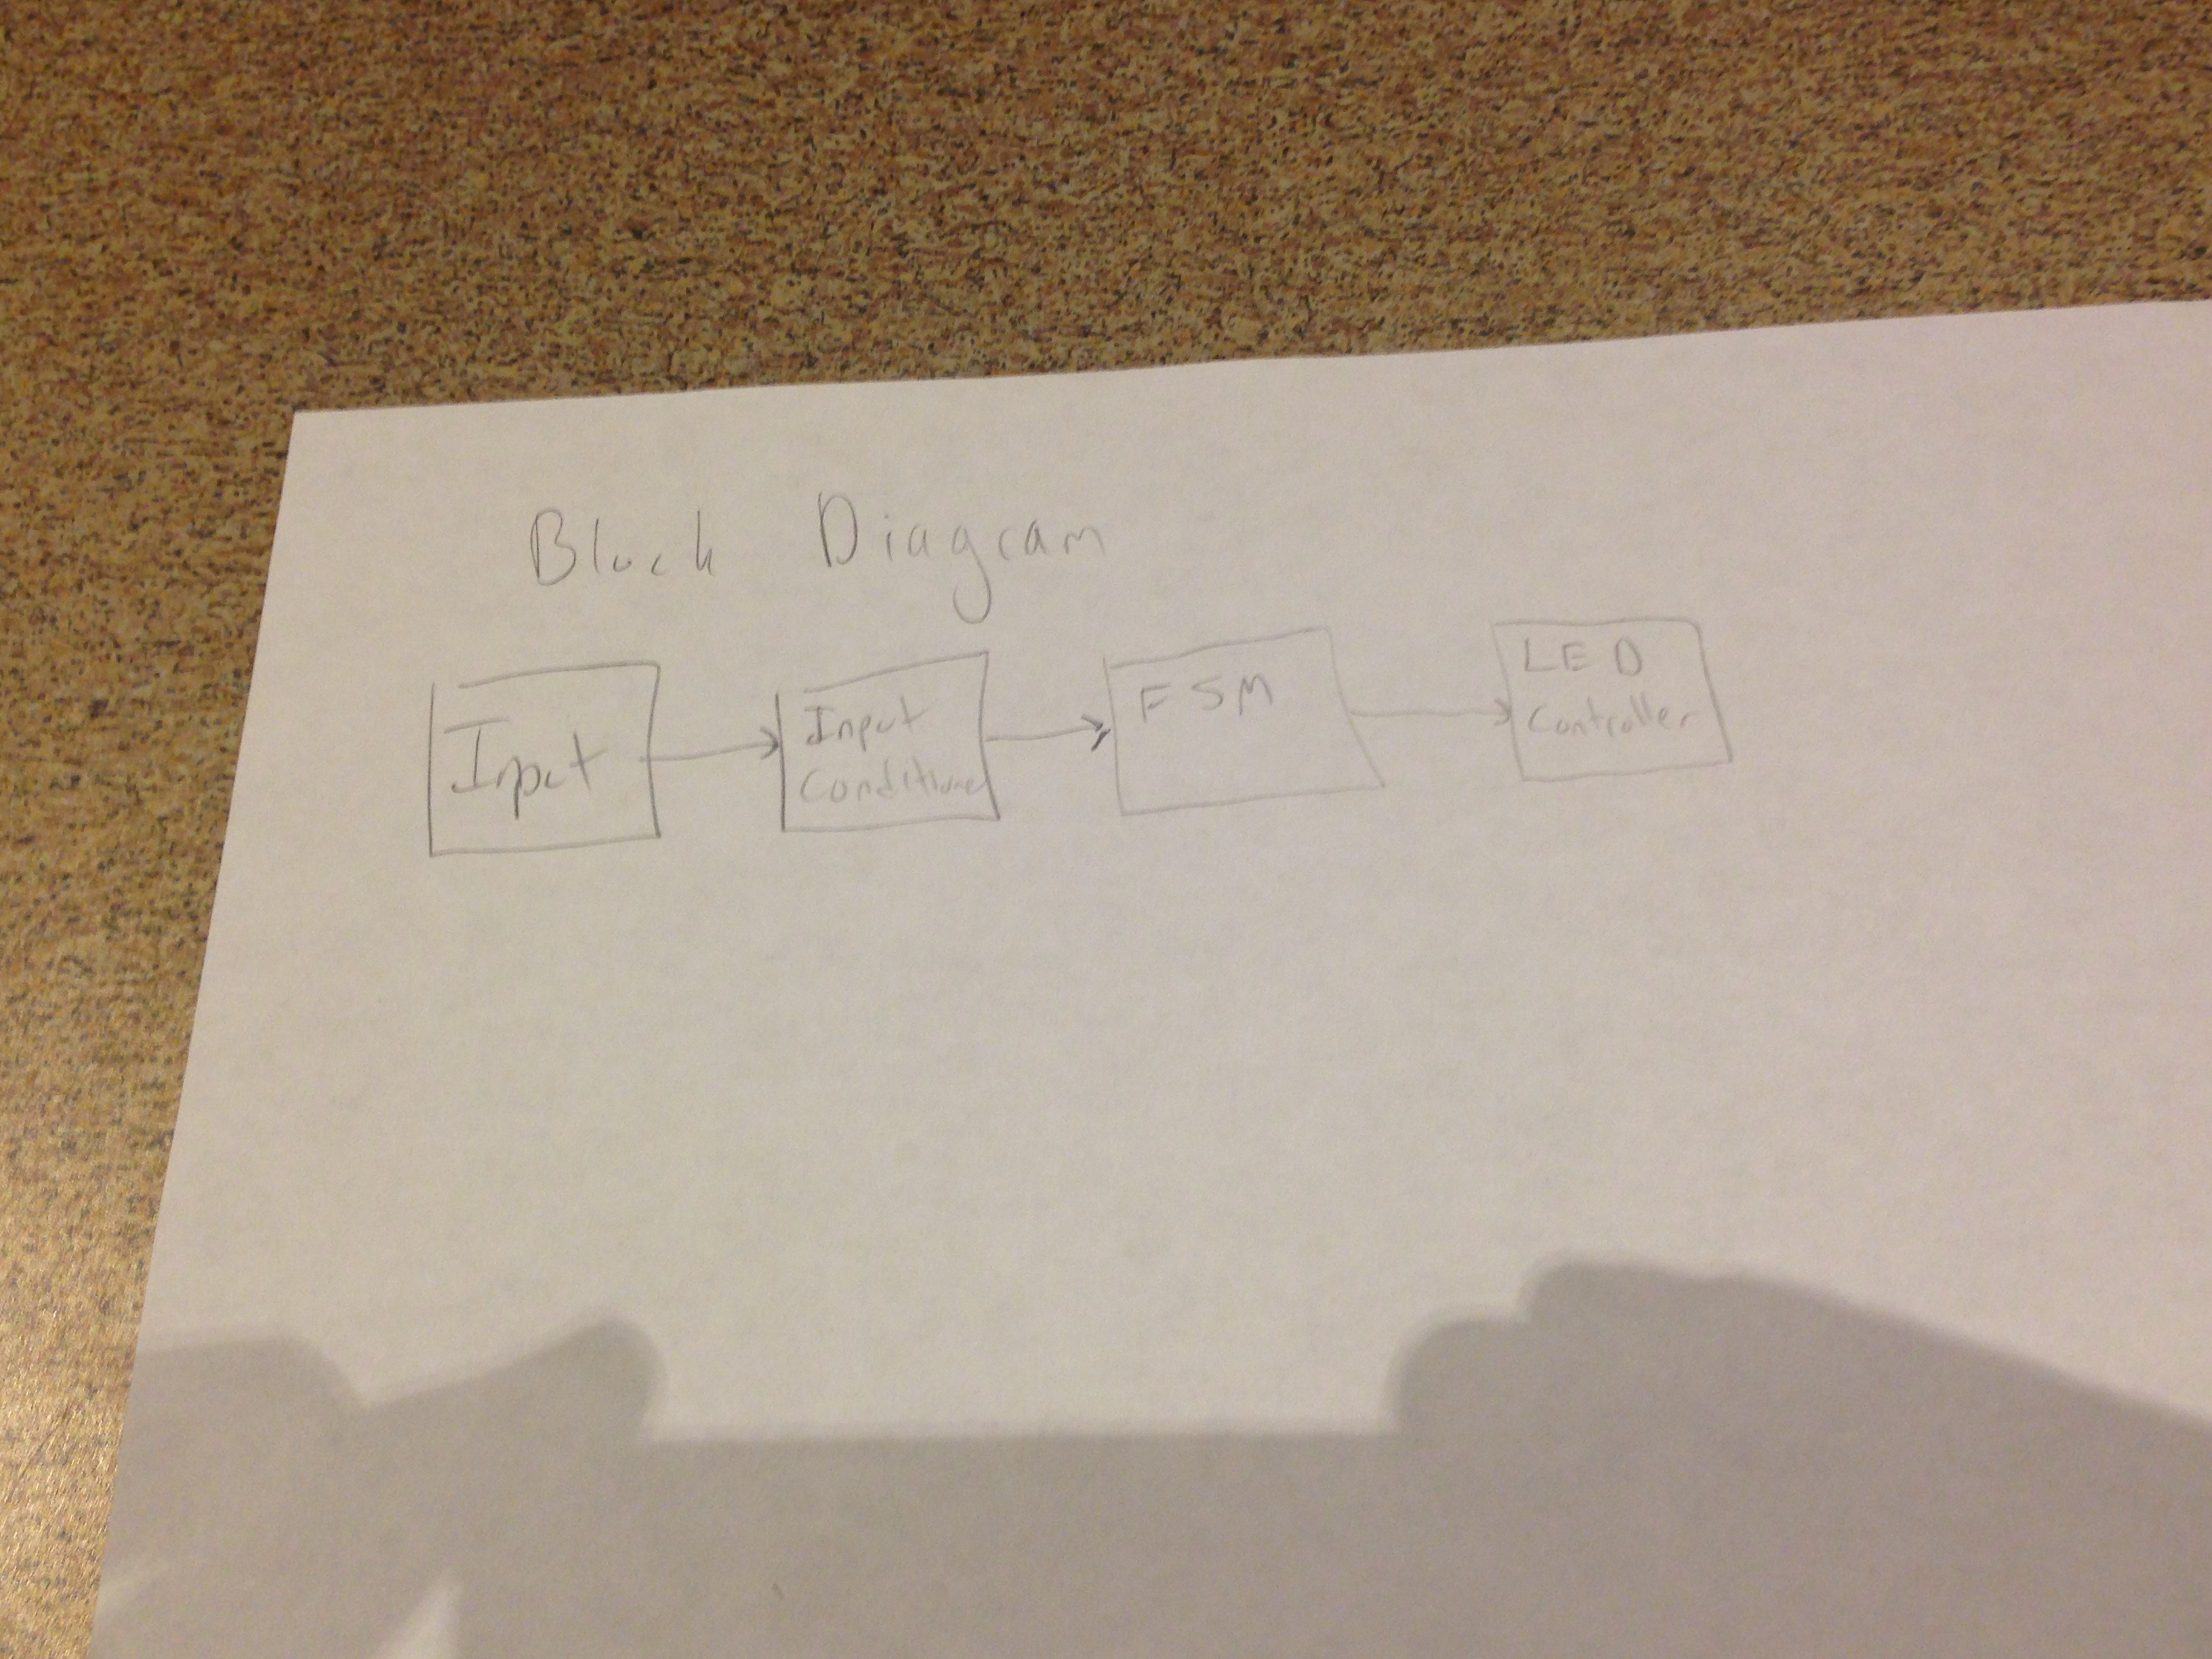 Block Diagram
Input
Input
Conditioner
FSM
LED
Controller